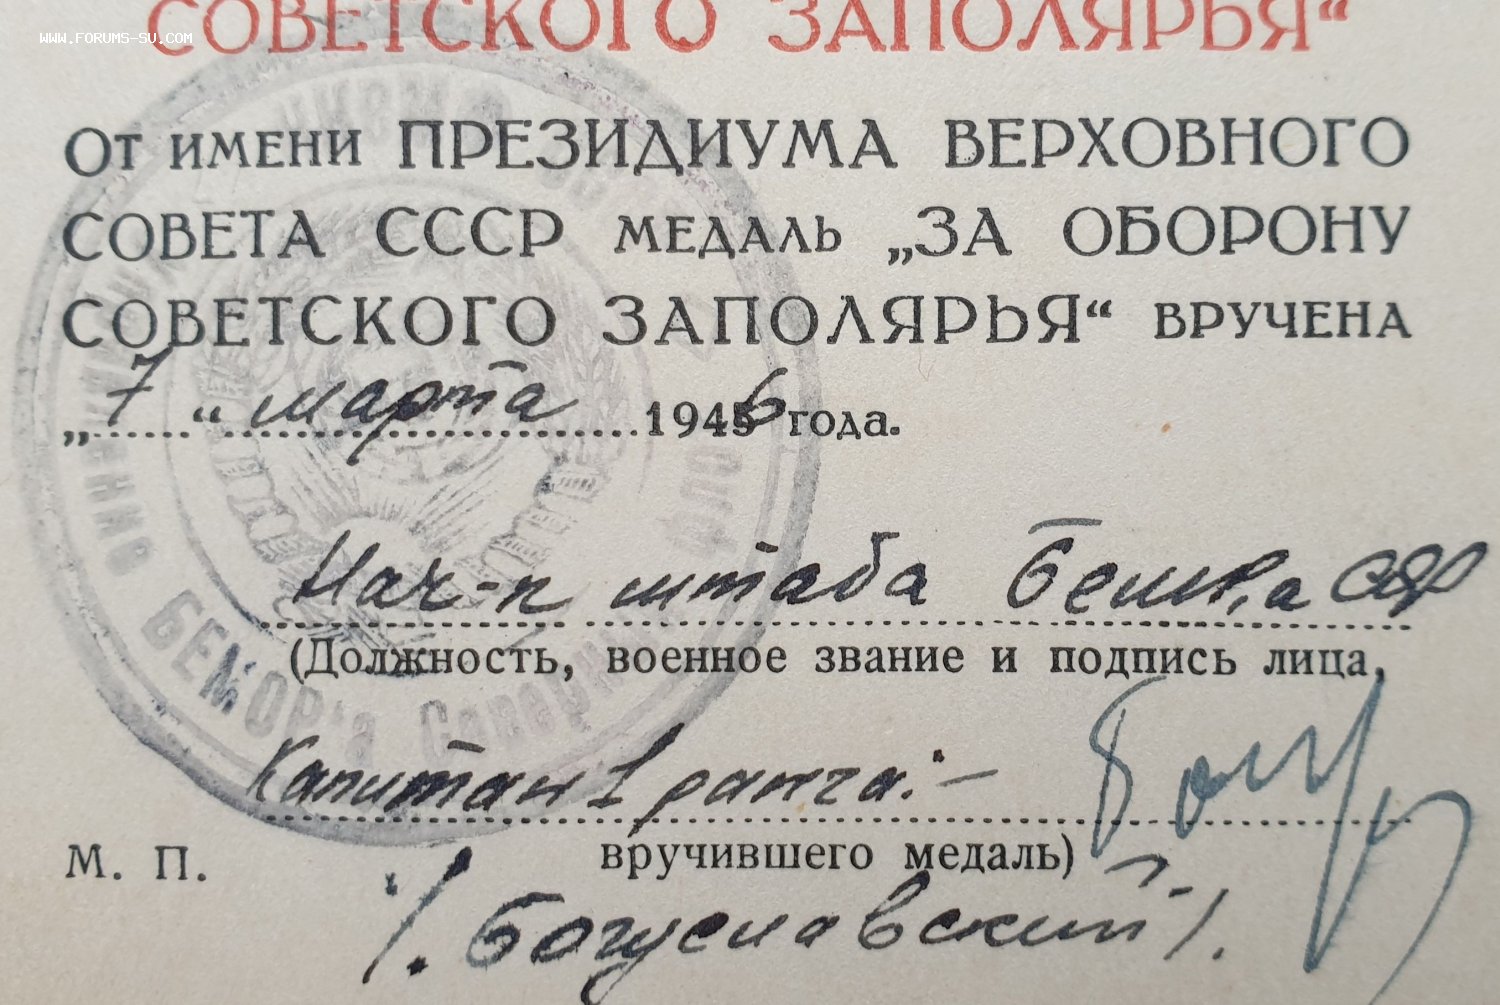 СОВЕТСКОГО ЗАПОЛЯРЬЯ“
WWW.FORUMS-SU.COM
От имени ПРЕЗИДИУМА ВЕРХОВНОГО
СОВЕТА СССР МЕДАЛЬ „ЗА ОБОРОНУ
СОВЕТСКОГО ЗАПОЛЯРЬЯ“ ВРУЧЕНА
„7“ марта 1946 года.
Нач-к штаба
(Должность, военное звание и подпись лица,
Капитан 1 ранга:-
М. П. вручившего медаль)
/. Богуславский /.
БЕМОР'а Северн